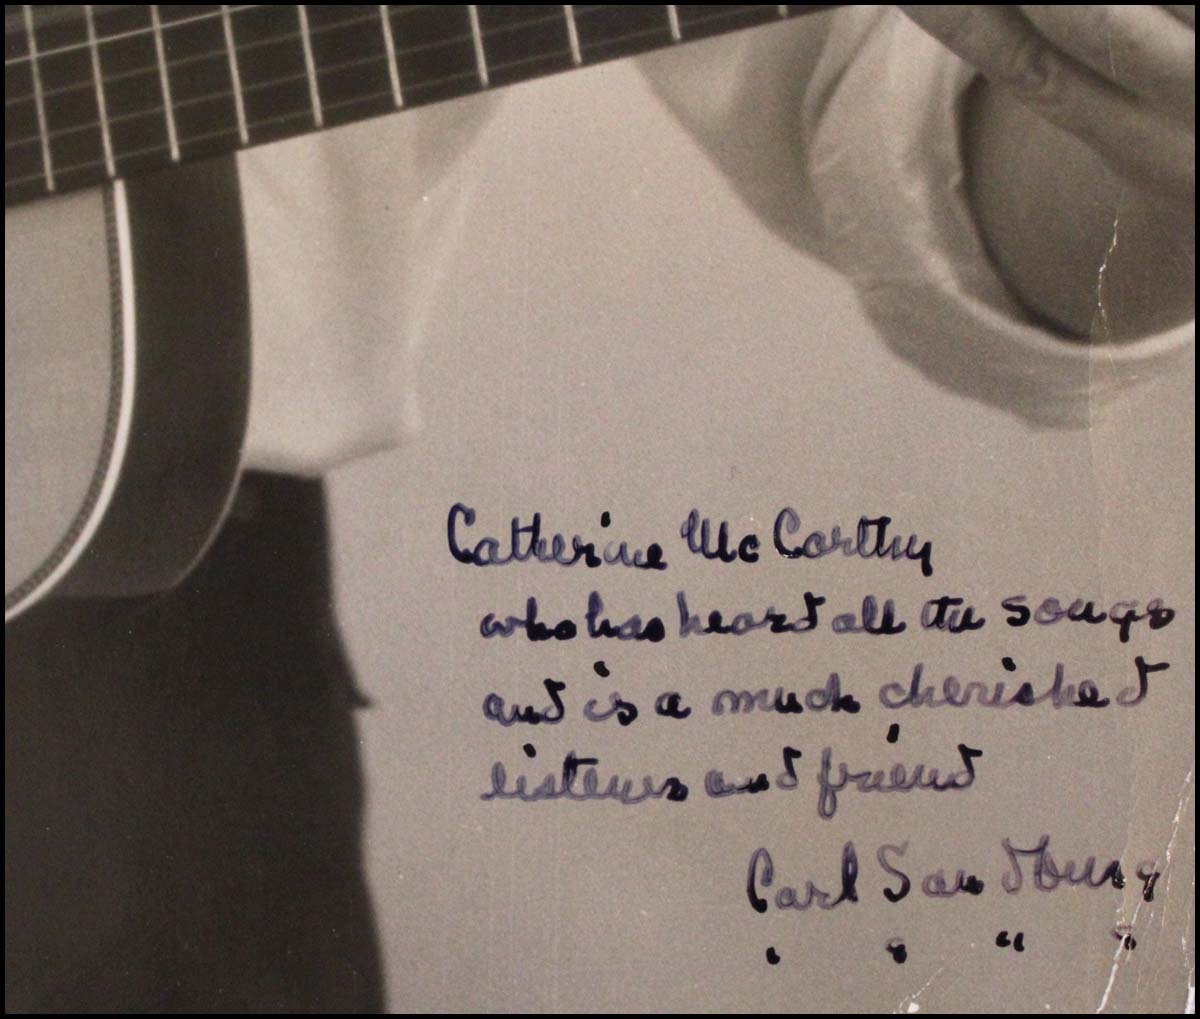 Catherine McCarthy
who has heard all the songs
and is a much cherished
listener and friend
Carl Sandburg